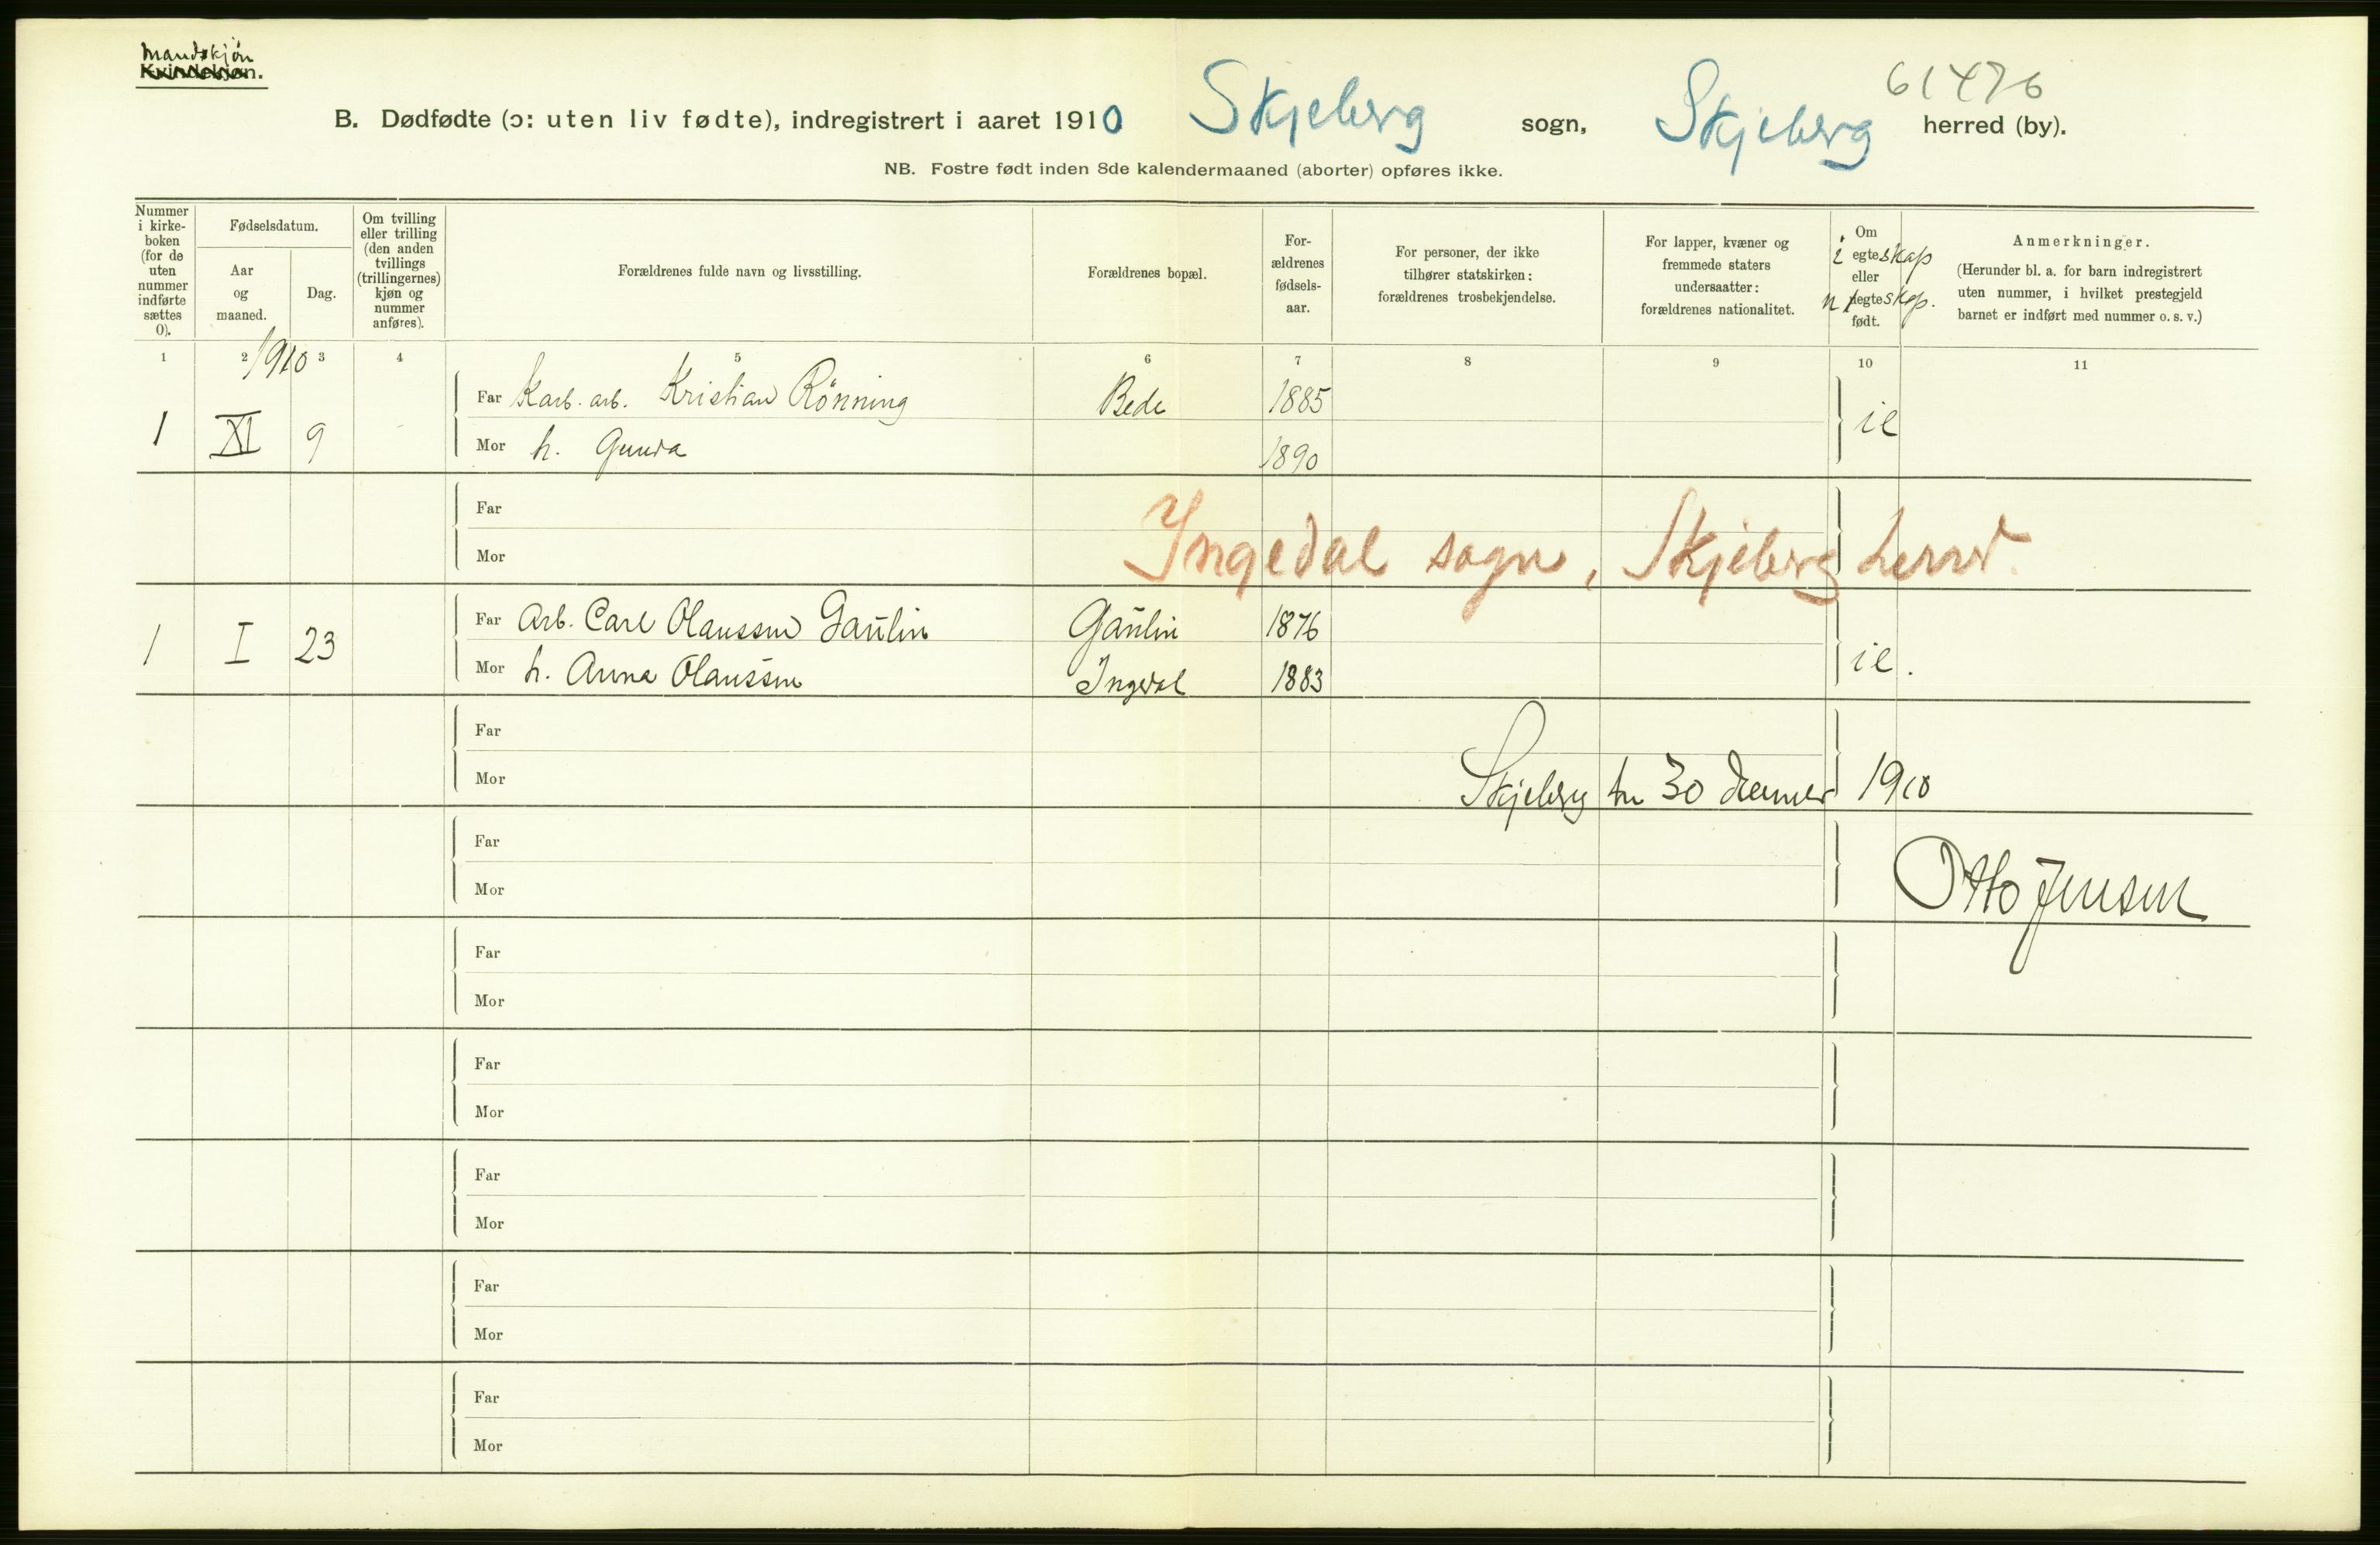 Mandskjøn
Kvindekjøn.
61476
B. Dødfødte (ɔ: uten liv fødte), indregistrert i aaret 1910 Skjeberg sogn, Skjeberg herred (by).
NB. Fostre født inden 8de kalendermaaned (aborter) opføres ikke.
Nummer i kirke-boken (for de uten nummer indførte sættes 0).
Fødselsdatum.
Aar og maaned.
Dag.
Om tvilling eller trilling (den anden tvillings (trillingernes) kjøn og nummer anføres).
Forældrenes fulde navn og livsstilling.
Forældrenes bopæl.
For-ældrenes fødsels-aar.
For personer, der ikke tilhører statskirken: forældrenes trosbekjendelse.
For lapper, kvæner og fremmede staters undersaatter: forældrenes nationalitet.
Om i egteskap eller u egteskap. født.
Anmerkninger.
(Herunder bl. a. for barn indregistrert uten nummer, i hvilket prestegjeld barnet er indført med nummer o. s. v.)
1 2 3 4 5 6 7 8 9 10 11
1910
Far Karb. arb. Kristian Rönning Bede 1885
1 XI 9 ie
Mor h. Gunda 1890
Far
Ingedal sogn, Skjeberg herred.
Mor
Far Arb. Carl Olaussen Gaulin Gaulin 1876
1 I 23 ie.
Mor h. Anna Olaussen Ingedal 1883
Far
Mor
Skjeberg 30 1910
Far
Mor
Otto Jensen
Far
Mor
Far
Mor
Far
Mor
Far
Mor
Far
Mor